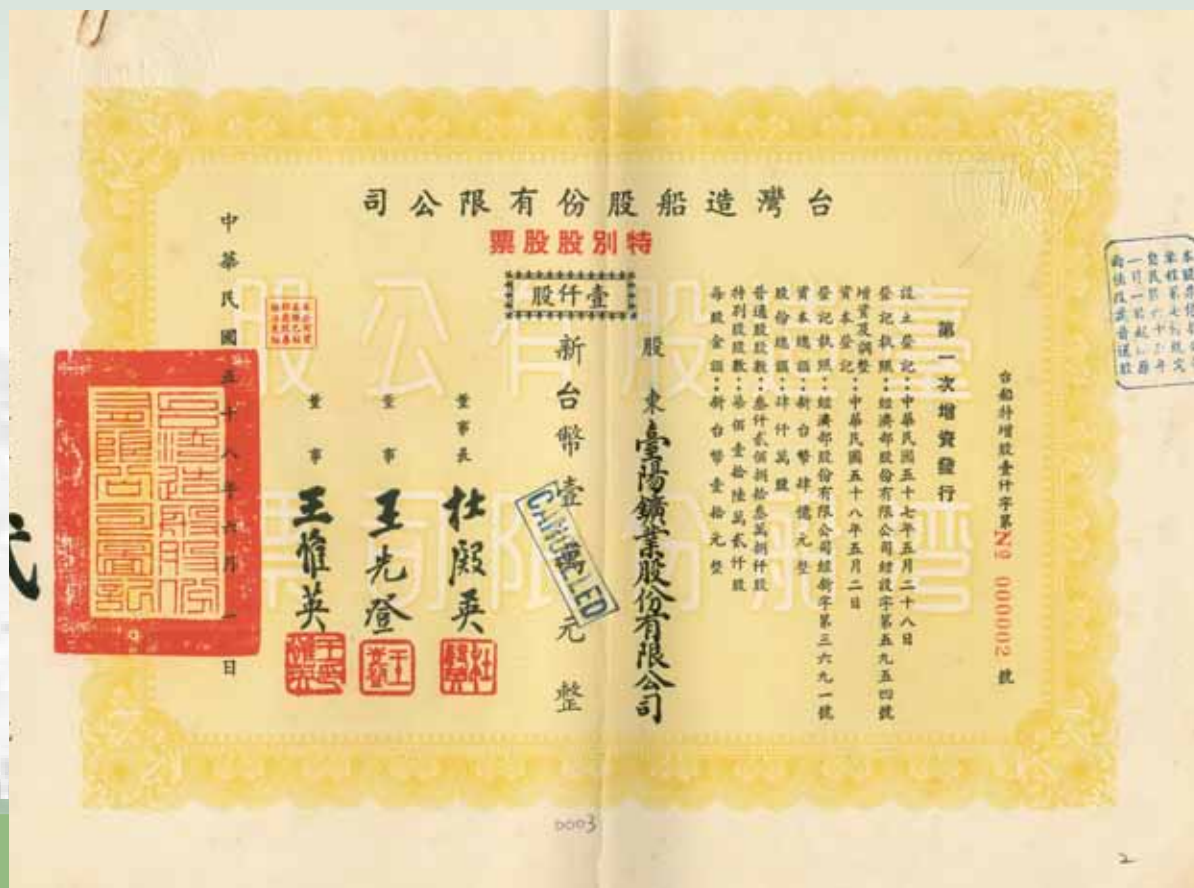 台灣造船股份有限公司
特別股股票
壹仟股
台船特增股壹仟字第№ 000002 號
第一次增資發行
設立登記：中華民國五十七年五月二十八日
登記執照：經濟部股份有限公司經設字第五九五四號
增資及調整
資本登記：中華民國五十八年五月二日
登記執照：經濟部股份有限公司經新字第三六九一號
資本總額：新台幣肆億元整
股份總額：肆仟萬股
普通股股數：叁仟貳佰捌拾叁萬捌仟股
特別股股數：柒佰壹拾陸萬貳仟股
每股金額：新台幣壹拾元整
股東 臺陽鑛業股份有限公司
新台幣壹萬元整
CANCELLED
董事長 杜殿英
董事 王先登
董事 王惟英
中華民國五十八年六月一日
台灣造船股份
有限公司圖記
臺灣船股份有限公司股票
0003
2